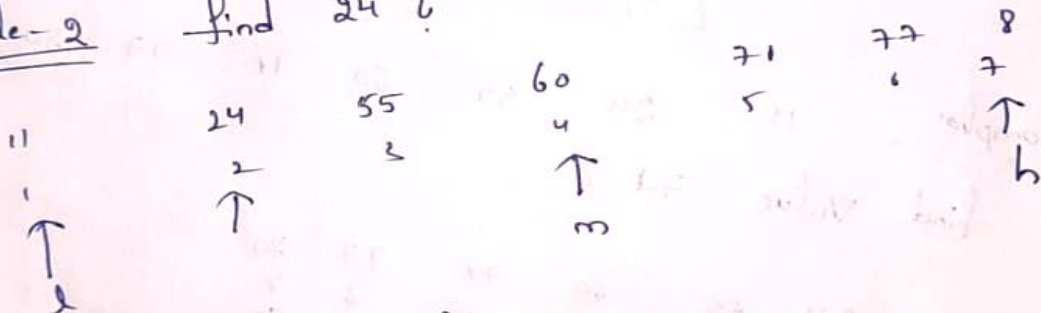 le-2 find 24 ?
11 24 55 60 71 77 8
1 2 3 4 5 6 7
↑ ↑ ↑ ↑
l m h